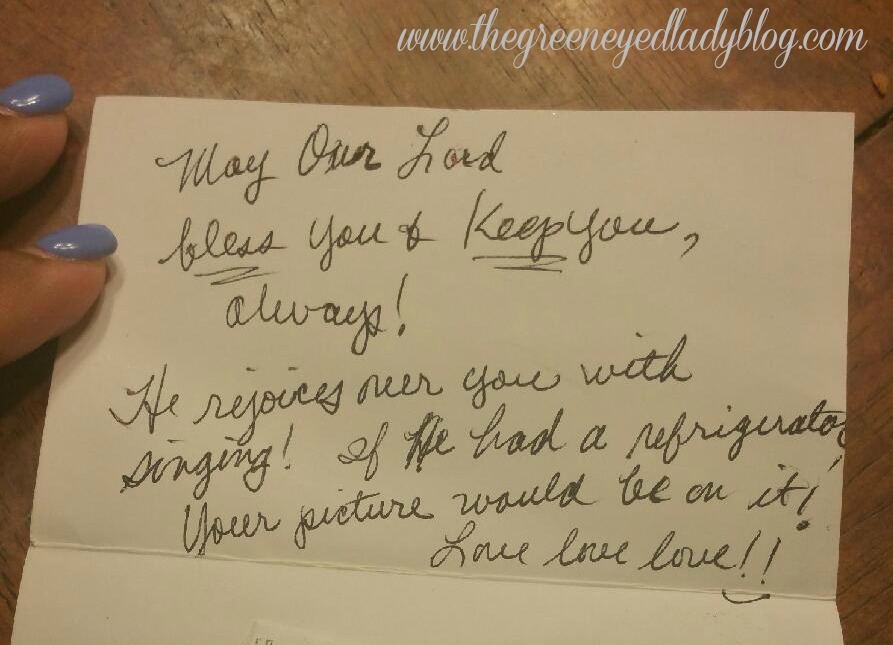 www.thegreeneyedladyblog.com
May Our Lord
bless you & Keep you,
always!
He rejoices over you with
singing! If He had a refrigerator
Your picture would be on it!
Love love love!!